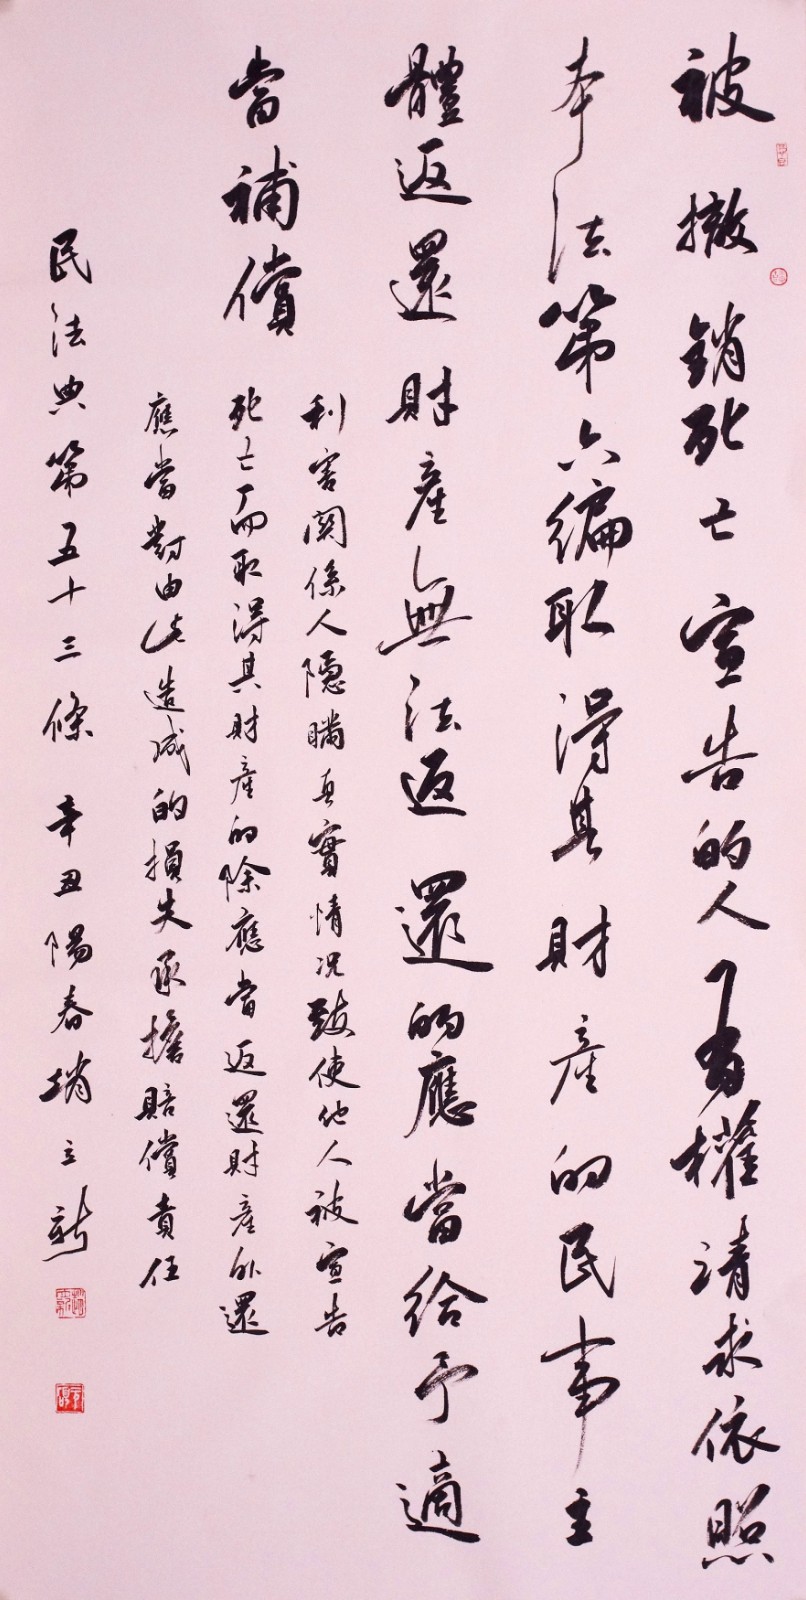 被撤銷死亡宣告的人有權請求依照
本法第六編取得其財產的民事主
體返還財產無法返還的應當給予適
當補償
利害関係人隱瞞真實情况致使他人被宣告
死亡而取得其財產的除應當返還財產外還
應當對由此造成的損失承擔賠償責任
民法典第五十三條 辛丑陽春 立新